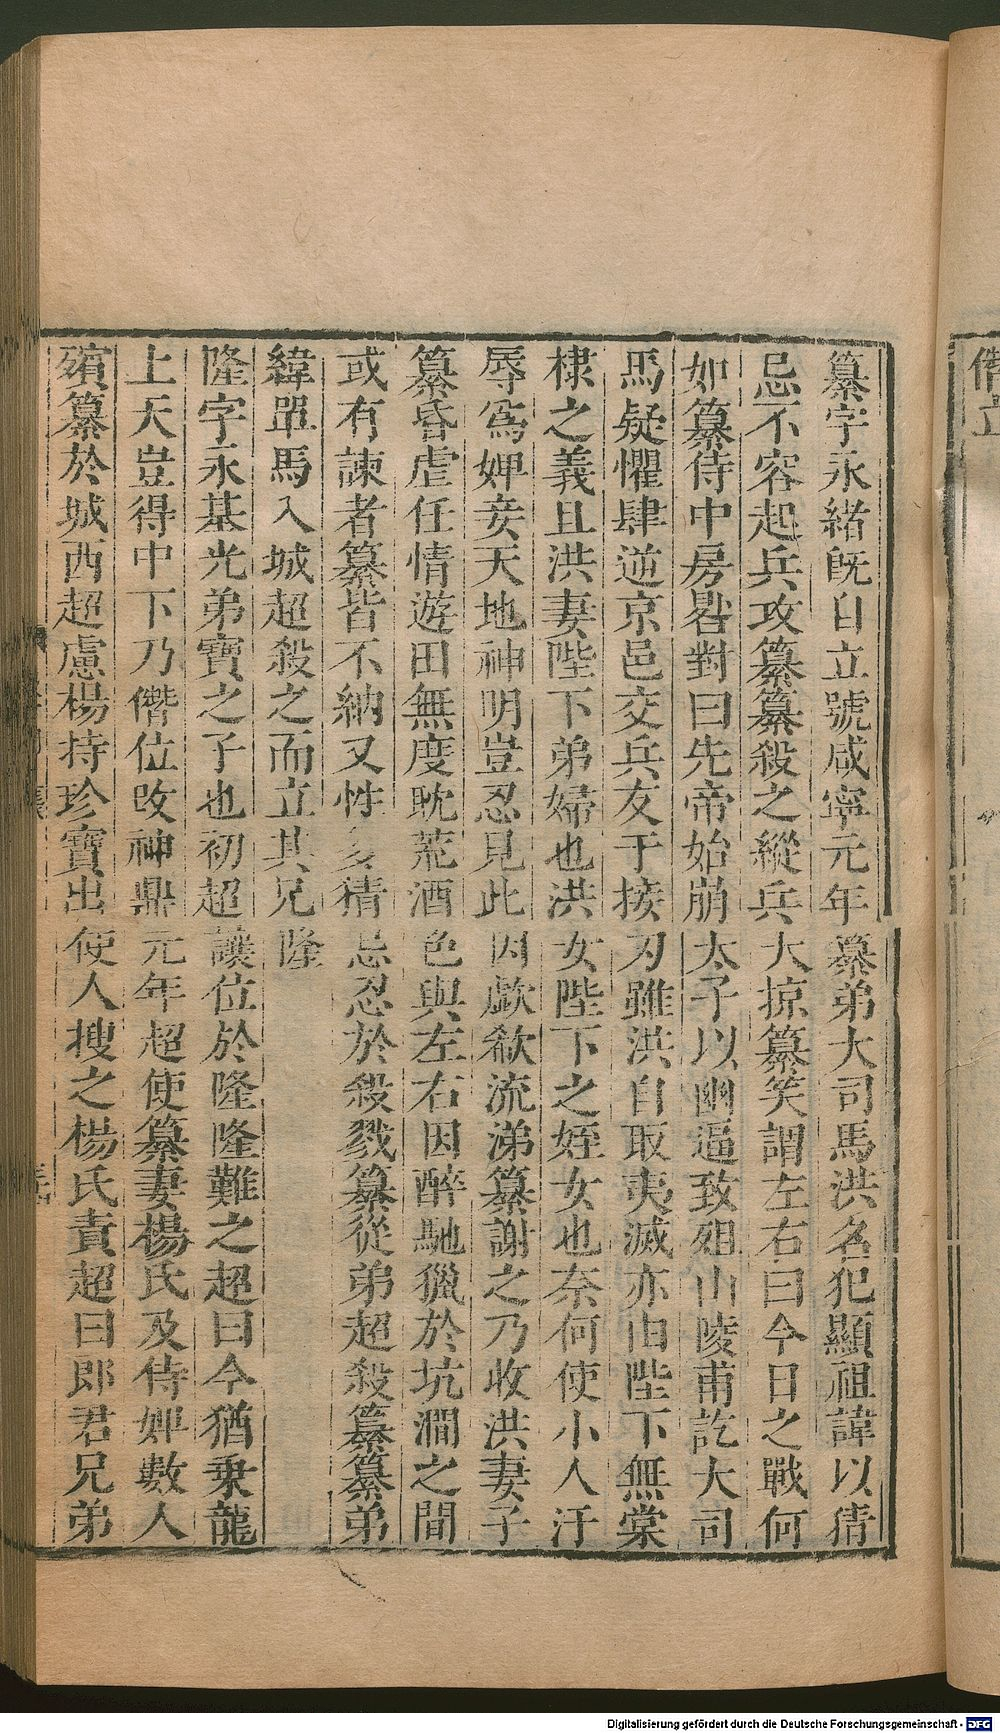 纂字永緒旣自立號咸寧元年纂弟大司馬洪名犯顯祖諱以猜
忌不容起兵攻纂纂殺之縱兵大掠纂笑謂左右曰今日之戰何
如纂侍中房晷對曰先帝始崩太子以幽逼致殂山陵甫訖大司
馬疑懼肆逆京邑交兵友于接刃雖洪自取夷滅亦由陛下無棠
棣之義且洪妻陛下弟婦也洪女陛下之姪女也柰何使小人汙
辱爲婢妾天地神明豈忍見此因歔欷流涕纂謝之乃收洪妻子
纂昏虐任情遊田無度耽荒酒色與左右因醉馳獵於坑澗之間
或有諫者纂皆不納又性多猜忌忍於殺戮纂從弟超殺纂纂弟
緯單馬入城超殺之而立其兄隆
隆字永基光弟寶之子也初超讓位於隆隆難之超曰今猶乗龍
上天豈得中下乃僭位改神鼎元年超使纂妻楊氏及侍婢數人
殯纂於城西超慮楊持珍寶出使人搜之楊氏責超曰郎君兄弟
僭立
Digitalisierung gefördert durch die Deutsche Forschungsgemeinschaft - DFG